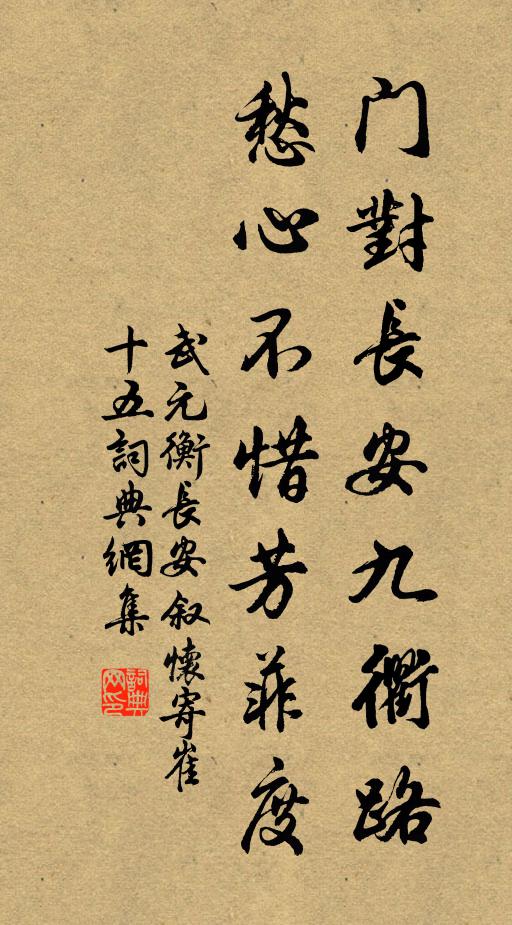 门對長安九衢路
愁心不惜芳菲度
武元衡長安叙懷寄崔
十五詞典網集
詞典
网印